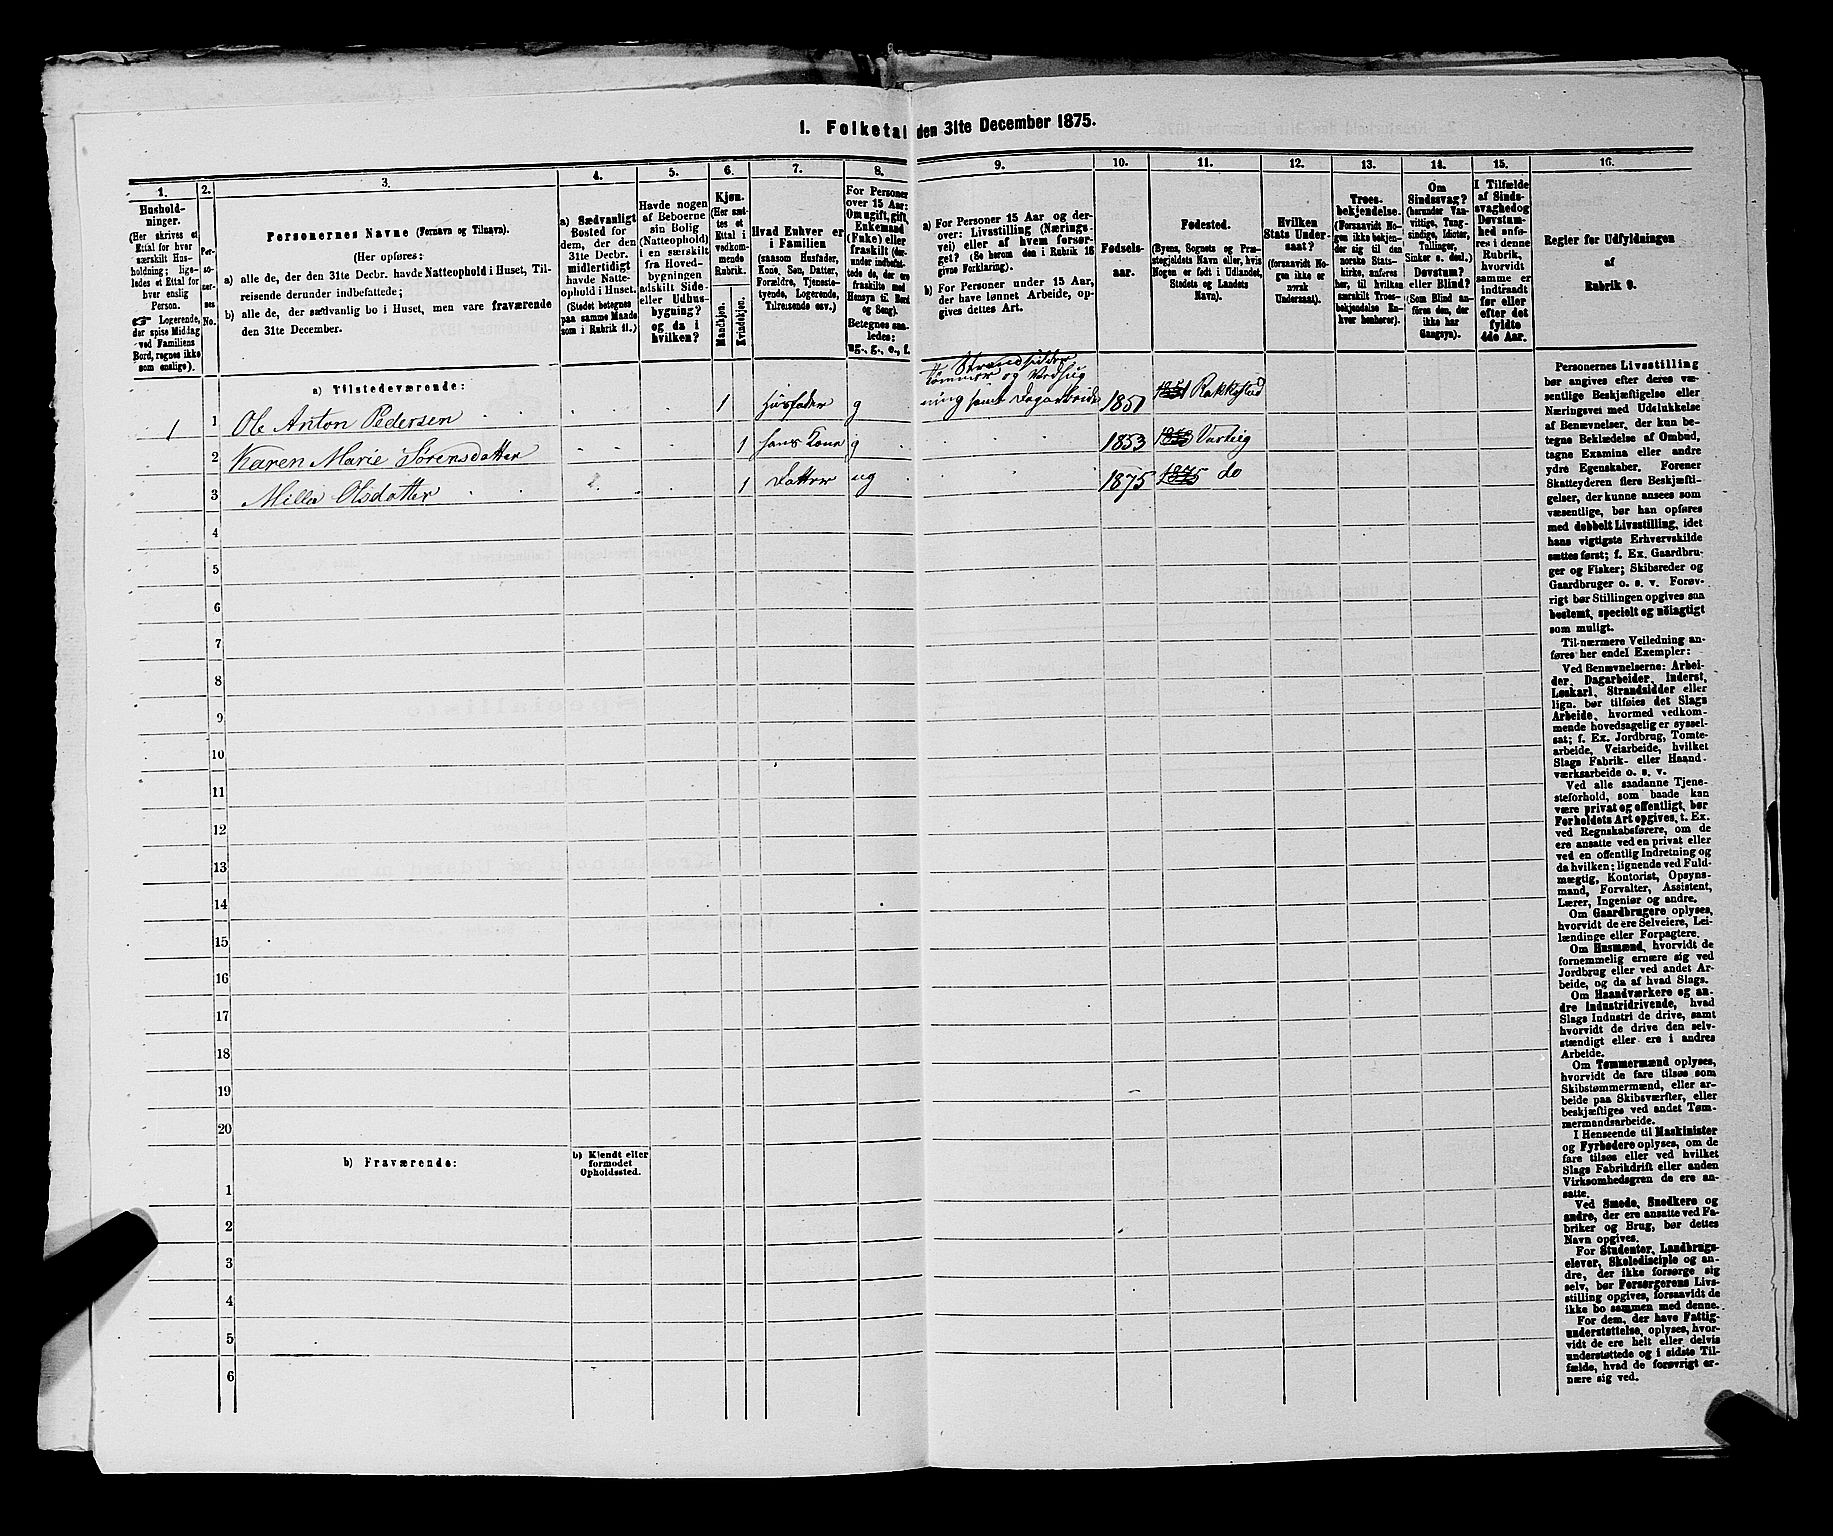 1. Folketal den 31te December 1875.
1.
2.
3.
4.
5.
6.
7.
8.
9.
10.
11.
12.
13.
14.
15.
16.
Hushold-
ninger.
(Her skrives et
Ettal for hver
særskilt Hus-
holdning; lige-
ledes et Ettal for
hver enslig
Person.
☞ Logerende,
der spise Middag
ved Familiens
Bord, regnes ikke
som enslige).
Per-
so-
ner-
ses
No.
Personernes Navne (Fornavn og Tilnavn).
(Her opføres:
a) alle de, der den 31te Decbr. havde Natteophold i Huset, Til-
reisende derunder indbefattede;
b) alle de, der sædvanlig bo i Huset, men vare fraværende
den 31te December.
a) Sædvanligt
Bosted for
dem, der den
31te Decbr.
midlertidigt
havde Natte-
ophold i Huset.
(Stedet betegnes
paa samme Maade
som i Rubrik 11.)
Havde nogen
af Beboerne
sin Bolig
(Natteophold)
i en særskilt
fra Hoved-
bygningen
adskilt Side-
eller Udhus-
bygning?
og da i
hvilken?
Kjøn.
(Her sæt-
tes et
Ettal i
vedkom-
mende
Rubrik.
Mandkjøn.
Kvindekjøn.
Hvad Enhver er
i Familien
(saasom Husfader,
Kone, Søn, Datter,
Forældre, Tjeneste-
tyende, Logerende,
Tilreisende osv.)
For Personer
over 15 Aar:
Om ugift, gift,
Enkemand
(Enke) eller
fraskilt (der-
under indbefat-
tede de, der ere
fraskilte med
Hensyn til Bord
og Seng).
Betegnes saa-
ledes:
ug., g., e., f.
a) For Personer 15 Aar og der-
over: Livsstilling (Nærings-
vei) eller af hvem forsør-
get? (Se herom den i Rubrik 16
givne Forklaring).
b) For Personer under 15 Aar,
der have lønnet Arbeide, op-
gives dettes Art.
Fødsels-
aar.
Fødested.
(Byens, Sognets og Præ-
stegjeldets Navn eller, hvis
Nogen er født i Udlandet,
Stedets og Landets
Navn).
Hvilken
Stats Under-
saat?
(forsaavidt No-
gen ikke er
norsk
Undersaat).
Troes-
bekjendelse.
(Forsaavidt No-
gen ikke bekjen-
der sig til den
norske Stats-
kirke, anføres
her, til hvilken
særskilt Troes-
bekjendelse En-
hver henhører).
Om
Sindssvag?
(herunder Van-
vittige, Tung-
sindige, Idioter,
Tullinger,
Sinker o. desl.)
Døvstum?
eller Blind?
(Som Blind an-
føres den, der
ikke har
Gangsyn).
I Tilfælde
af Sinds-
svaghed og
Døvstum-
hed anfø-
res i denne
Rubrik,
hvorvidt
samme er
indtraadt
før eller
efter det
fyldte
4de Aar.
Regler for Udfyldningen
af
Rubrik 9.
a) Tilstedeværende:
1 1 Ole Anton Pedersen 1 Husfader g Strandsidder
Tømmer og Vedhug
ning samt Dagarbeide 1851 1851 Rakkestad
2 Karen Marie Sørensdatter 1 hans Kone g 1853 1853 Varteig
3 Milla Olsdatter 1 Datter ug 1875 1875 do
4
5
6
7
8
9
10
11
12
13
14
15
16
17
18
19
20
b) Fraværende:
b) Kjendt eller
formodet
Opholdssted.
1
2
3
4
5
6
Personernes Livsstilling
bør angives efter deres væ-
sentlige Beskjæftigelse eller
Næringsvei med Udelukkelse
af Benævnelser, der kun be-
tegne Beklædelse af Ombud,
tagne Examina eller andre
ydre Egenskaber. Forener
Skatteyderen flere Beskjæfti-
gelser, der kunne ansees som
væsentlige, bør han opføres
med dobbelt Livsstilling, idet
hans vigtigste Erhvervskilde
sættes først; f. Ex. Gaardbru-
ger og Fisker; Skibsreder og
Gaardbruger o. s. v. Forøv-
rigt bør Stillingen opgives saa
bestemt, specielt og nöiagtigt
som muligt.
Til nærmere Veiledning an-
føres her endel Exempler:
Ved Benævnelserne: Arbei-
der, Dagarbeider, Inderst,
Løskarl, Strandsidder eller
lign. bør tilføies det Slags
Arbeide, hvormed vedkom-
mende hovedsagelig er syssel-
sat; f. Ex. Jordbrug, Tomte-
arbeide, Veiarbeide, hvilket
Slags Fabrik- eller Haand-
værksarbeide o. s. v.
Ved alle saadanne Tjene-
steforhold, som baade kan
være privat og offentligt, bør
Forholdets Art opgives, t. Ex.
ved Regnskabsførere, om de
ere ansatte ved en privat eller
ved en offentlig Indretning og
da hvilken; lignende ved Fuld-
mægtig, Kontorist, Opsyns-
mand, Forvalter, Assistent,
Lærer, Ingeniør og andre.
Om Gaardbrugere oplyses,
hvorvidt de ere Selveiere, Lei-
lændinge eller Forpagtere.
Om Husmænd, hvorvidt de
fornemmelig ernære sig ved
Jordbrug eller ved andet Ar-
beide, og da af hvad Slags.
Om Haandværkere og an-
dre industridrivende, hvad
Slags Industri de drive, samt
hvorvidt de drive den selv-
stændigt eller ere i andres
Arbeide.
Om Tømmermænd oplyses,
hvorvidt de fare tilsøs som
Skibstømmermænd, eller ar-
beide paa Skibsværfter, eller
beskjæftiges ved andet Tøm-
mermandsarbeide.
I Henseende til Maskinister
og Fyrbødere oplyses, om de
fare tilsøs eller ved hvilket
Slags Fabrikdrift eller anden
Virksomhedsgren de ere an-
satte.
Ved Smede, Snedkere og
andre, der ere ansatte ved Fa-
briker og Brug, bør dettes
Navn opgives.
For Studenter, Landbrugs-
elever, Skoledisciple og an-
dre, der ikke forsørge sig
selv, bør Forsørgerens Livs-
stilling opgives, forsaavidt de
ikke bo sammen med denne.
For dem, der have Fattig-
understøttelse, oplyses, hvor-
vidt de ere helt eller delvis
understøttede og i sidste Til-
fælde, hvad de forøvrigt er-
nære sig ved.